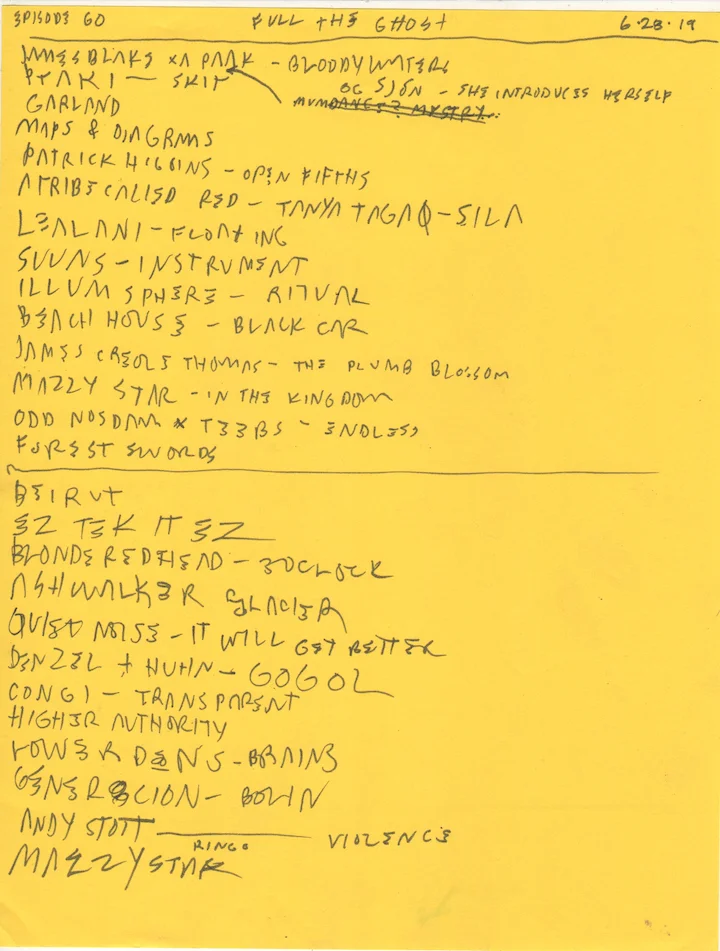 EPISODE 60 FULL THE GHOST 6·28·19
JAMES BLAKE X A PAAK - BLOODY WATERS
OG SIJON - SHE INTRODUCES HERSELF
PTAKI - SKIT
GARLAND
MAPS & DIAGRAMS
PATRICK HIGGINS - OPEN FIFTHS
A TRIBE CALLED RED - TANYA TAGAQ - SILA
LEALANI - FLOATING
SUUNS - INSTRUMENT
ILLUM SPHERE - RITUAL
BEACH HOUSE - BLACK CAR
JAMES CREOLE THOMAS - THE PLUMB BLOSSOM
MAZZY STAR - IN THE KINGDOM
ODD NOSDAM X TEEBS - ENDLESS
FOREST SWORDS
BEIRUT
EZ TEK IT EZ
BLONDE REDHEAD - 3OCLOCK
ASHWALKER GLACIER
QUIET NOISE - IT WILL GET BETTER
DENZEL + HUHN - GOGOL
CONGI - TRANSPARENT
HIGHER AUTHORITY
LOWER DENS - BRAINS
GENERACION - BOLIN
ANDY STOTT VIOLENCE
RINGO
MAZZY STAR